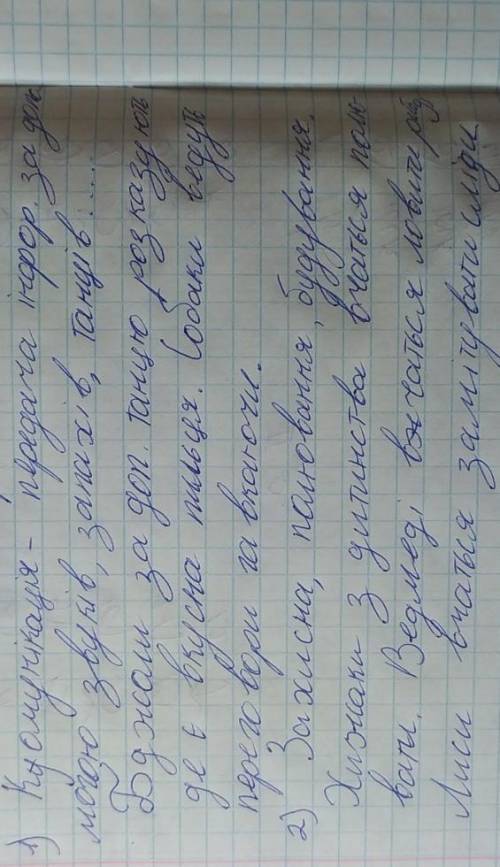 1) Комунікація – передача інфор. за допо
могою звуків, запахів, танців....
Бджоли за доп. танцю розказують
де є вкусна пильця. Собаки ведуть
переговори гавкаючи.
2) Захисна, полювання, будування.
Хижаки з дитинства вчаться полю
вати. Ведмеді вжчаться ловити рибу
Лиси вчаться замітувати сліди